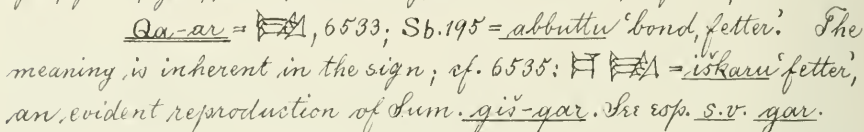 Qa-ar = , 6533; Sb. 195 = abbuttu 'bond, fetter.' The
meaning is inherent in the sign; cf. 6535: = iškaru 'fetter',
an evident reproduction of Sum. giš-qar. See esp. s.v. gar.